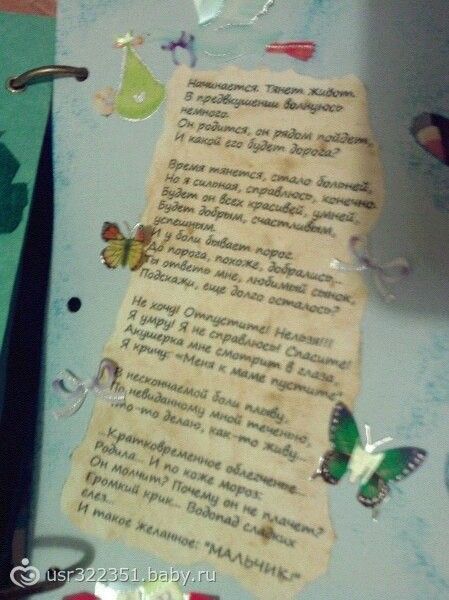 Начинается. Тянет живот.
В предвкушении волнуюсь
немного.
Он родится, он рядом пойдет,
И какой его будет дорога?
Время тянется, стало больней,
Но я сильная, справлюсь, конечно.
Будет он всех красивей, умней,
Будет добрым, счастливым,
успешным.
И у боли бывает порог.
До порога, похоже, добрались...
Ты ответь мне, любимый сынок,
Подскажи, еще долго осталось?
Не хочу! Отпустите! Нельзя!!!
Я умру! Я не справлюсь! Спасите!
Акушерка мне смотрит в глаза,
Я кричу: «Меня к маме пустите»
В нескончаемой боли плыву,
По невиданному мной теченью,
Что-то делаю, как-то живу...
...Кратковременное облегченье...
Родила... И по коже мороз:
Он молчит? Почему он не плачет?
Громкий крик... Водопад сладких
слез...
И такое желанное: "МАЛЬЧИК!"
usr322351.baby.ru